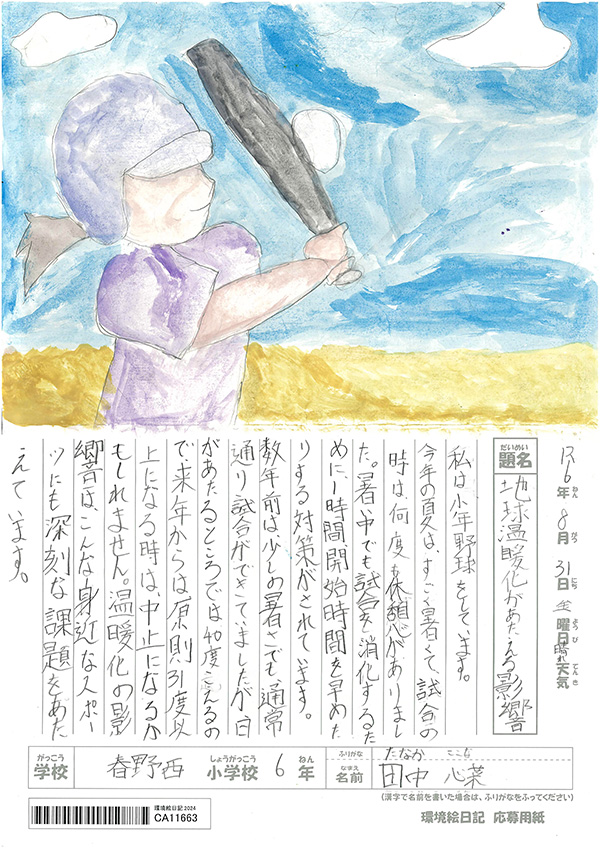 R6年8月31日 土曜日 晴れ天気
ねん がつ にち ようび てんき
だいめい
題名 地球温暖化があたえる影響
私は少年野球をしています。
今年の夏は、すごく暑くて、試合の
時は、何度も休憩がありまし
た。暑い中でも試合を消化するた
めに、1時間開始時間を早めた
りする対策がされています。
数年前は、少しの暑さでも、通常
通り試合ができていましたが、日
があたるところでは40度こえるの
で来年からは原則31度以
上になる時は、中止になるか
もしれません。温暖化の影
響は、こんな身近なスポー
ツにも深刻な課題をあた
えています。
がっこう しょうがっこう ねん
学校 春野西 小学校 6年
ふりがな たなか ここな
なまえ
名前 田中 心菜
(漢字で名前を書いた場合は、ふりがなをふってください)
環境絵日記 2024
CA11663
環境絵日記 応募用紙